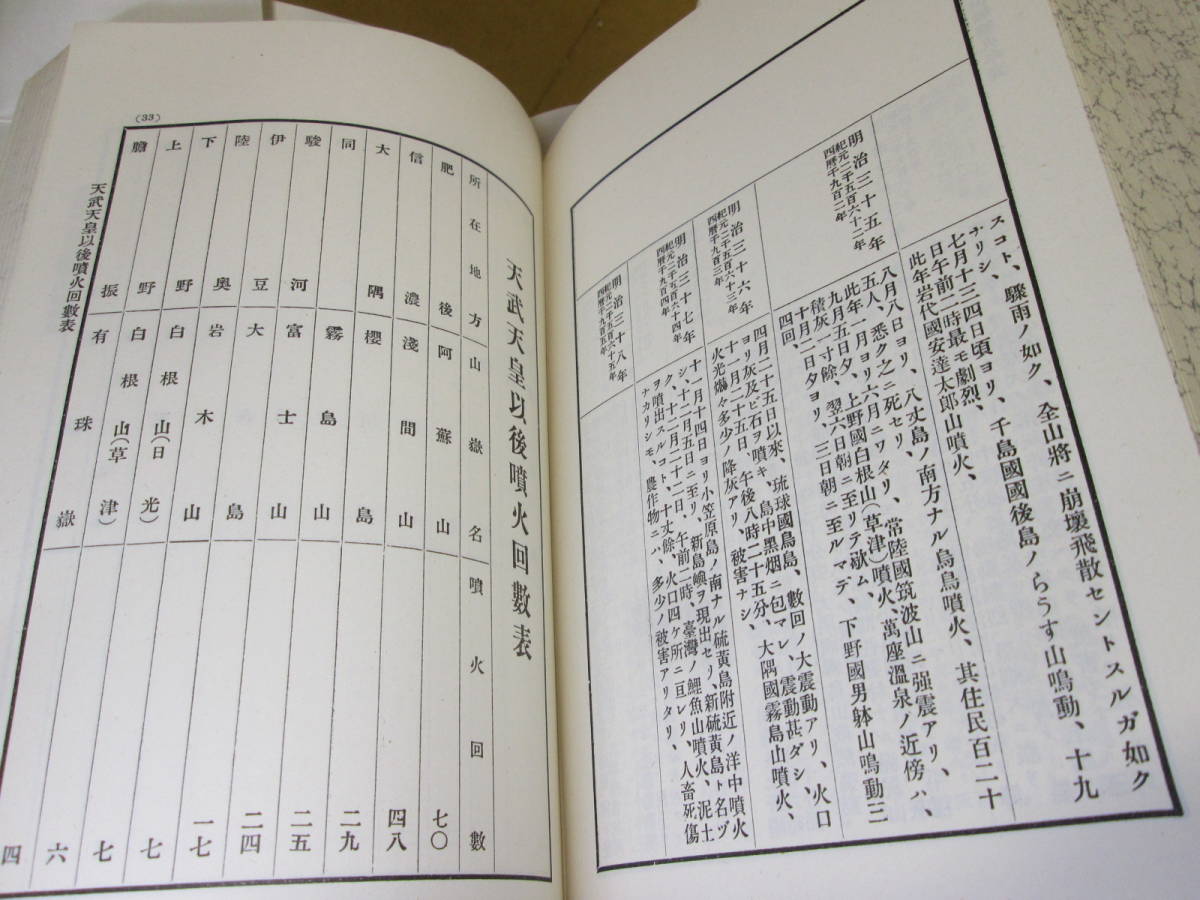 スコト、驟雨ノ如ク、全山將ニ崩壞飛散セントスルガ如ク
ナリシ、
七月十三四日頃ヨリ、千島國國後島ノらうす山鳴動、十九
日午前二時最モ劇烈、
此年岩代國安達太郎山噴火、
明治三十五年
紀元二千五百六十二年
西曆千九百二年
八月八日ヨリ、八丈島ノ南方ナル鳥島噴火、其住民百二十
五人、悉ク之ニ死セリ、
此年一月ヨリ六月ニワタリ、常陸國筑波山ニ强震アリ、
九月五日夕、上野國白根山(草津)噴火、萬座溫泉ノ近傍ハ、
積灰一寸餘、翌六日朝ニ至リテ歇ム、
十月二日夕ヨリ、三日朝ニ至ルマデ、下野國男躰山鳴動三
四回、
明治三十六年
紀元二千五百六十三年
西曆千九百三年
四月二十五日以來、琉球國鳥島、數回ノ大震動アリ、火口
ヨリ灰及ビ石ヲ噴キ、島中黑烟ニ包マレ、震動甚ダシ、
十一月二十五日、午後八時二十五分、大隅國霧島山噴火、
火光爛々多少ノ降灰アリ、被害ナシ、
明治三十七年
紀元二千五百六十四年
西曆千九百四年
十一月十四日ヨリ小笠原島ノ南ナル硫黃島附近ノ洋中噴火
シ、十二月五日ニ至リ、新島嶼ヲ現出セリ、新硫黃島ト名ヅ
ク、十二月二十二日、午前二時、臺灣ノ鯉魚山噴火、泥土
ヲ噴出スルコト、十丈餘、火口四ケ所ニ亘レリ、人畜死傷
ナカリシモ、農作物ニハ、多少ノ被害アリタリ、
明治三十八年
紀元二千五百六十五年
西曆千九百五年
天武天皇以後噴火回數表
所在地方 山嶽名 噴火回數
肥後 阿蘇山 七〇
信濃 淺間山 四八
大隅 櫻島 二九
同 霧島山 二五
駿河 富士山 二四
伊豆 大島 一七
陸奧 岩木山 七
下野 白根山(日光) 七
上野 白根山(草津) 六
膽振 有珠嶽 四
天武天皇以後噴火回數表
(33)